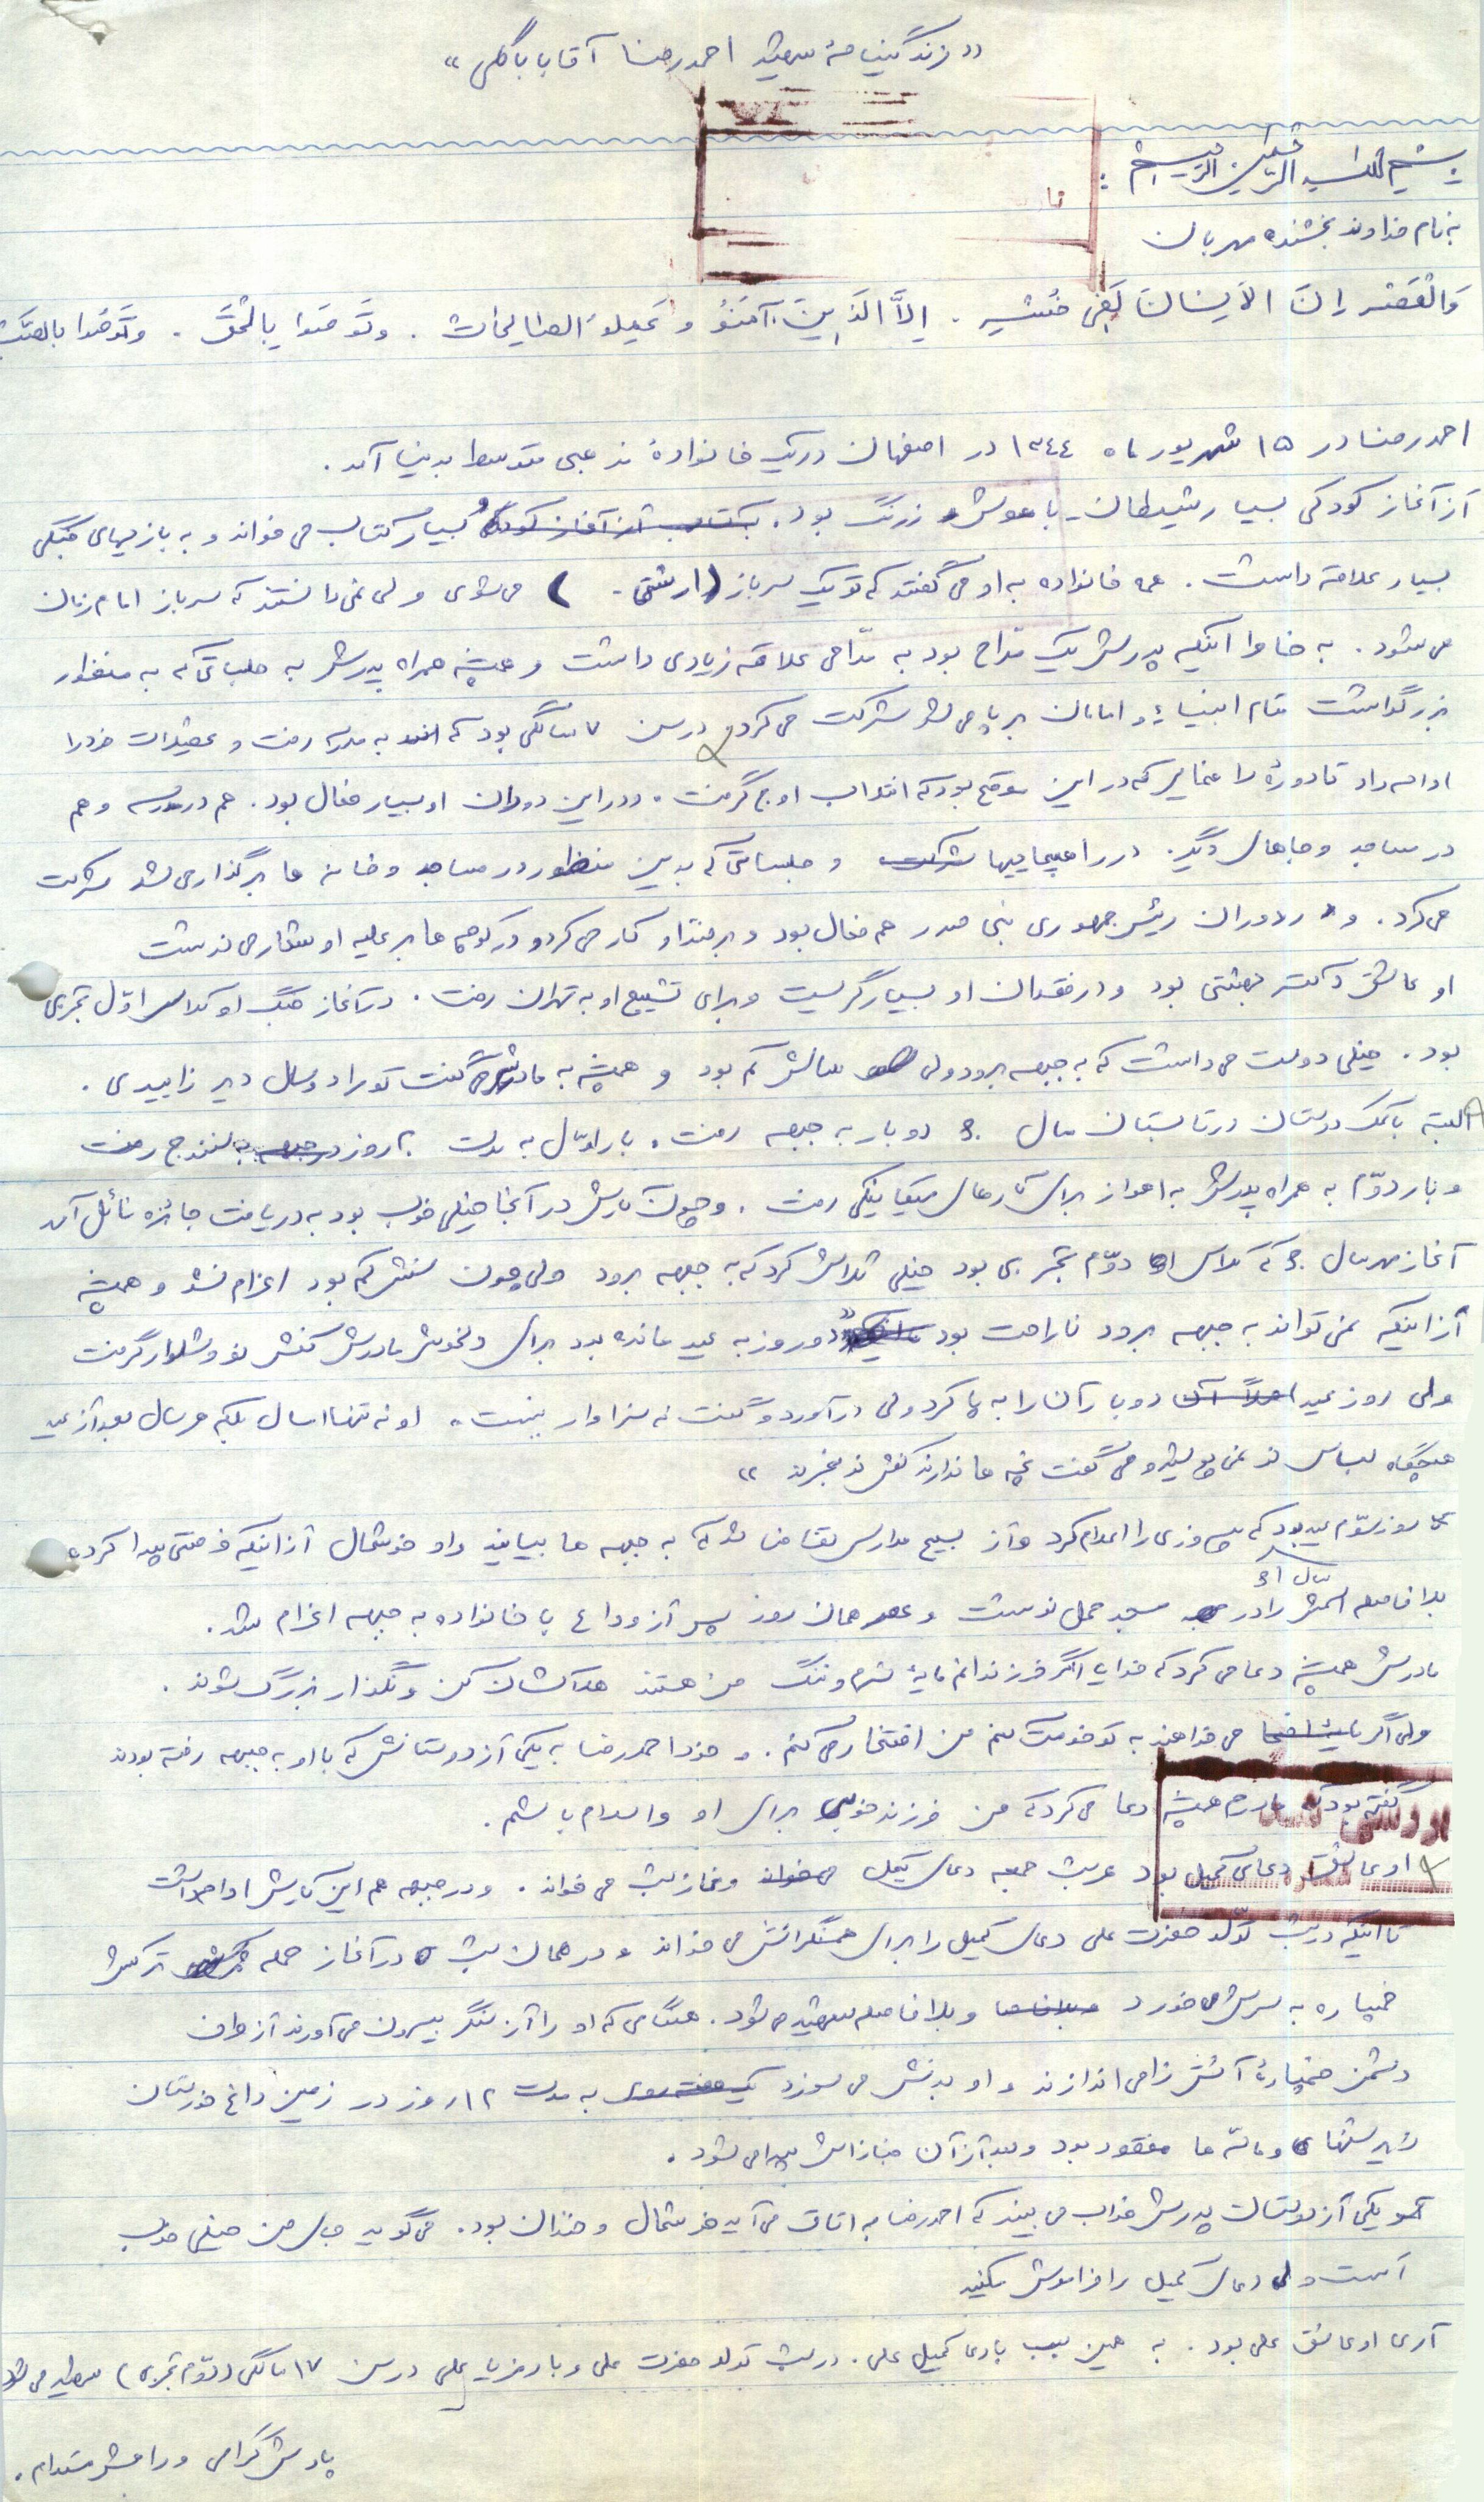 «زندگینامهٔ شهید احمدرضا آقاباباگلی»
بِسْمِ اللهِ الرَّحْمنِ الرَّحیمْ :
به نام خداوند بخشنده مهربان
وَالْعَصْرِ اِنَّ الاَنِسْانَ لَفی خُسْرٍ . اِلاَّ الَّذینَ آمَنُوُ و عَمِلوُ الصّالِحاتْ . وتَوَصَوْا بِالْحَقَّ . وتَوَصَوْا بالصَّبْ
احمدرضا در ۱۵ شهریور ماه ۱۳۴۴ در اصفهان در یک خانوادهٔ مذهبی متوسط بدنیا آمد .
از آغاز کودکی بسیار شیطان - باهوش و زرنگ بود . بسیار کتاب می خواند و به بازیهای جنگی
بسیار علاقه داشت . همه خانواده به او می گفتند که تو یک سرباز (ارتشی - ) می شوی ولی نمی دانستند که سرباز امام زمان
می شود . به خاطر اینکه پدرش یک مدّاح بود به مدّاحی علاقه زیادی داشت و همیشه همراه پدرش به جلساتی که به منظور
بزرگداشت مقام انبیاء و امامان برپا می شد شرکت می کرد و در سن ۷ سالگی بود که به مدرسه رفت و تحصیلات خود را
ادامه داد تا دورهٔ راهنمایی که در این موقع بود که انقلاب اوج گرفت . در این دوران او بسیار فعال بود . هم در مدرسه و هم
در مساجد و جاهای دیگر . در راهپیماییها و جلساتی که بدین منظور در مساجد و خانه ها برگذار می شد شرکت
می کرد . و در دوران رئیس جمهوری بنی صدر هم فعال بود و بر ضد او کار می کرد و در کوچه ها بر علیه او شعار می نوشت
او عاشق دکتر بهشتی بود و در فقدان او بسیار گریست و برای تشییع او به تهران رفت . در آغاز جنگ او کلاس اوّل تجربی
بود . خیلی دوست می داشت که به جبهه برود ولی سالش کم بود و همیشه به مادرش می گفت تو مرا دو سال دیر زاییدی .
البته با کمک دوستان در تابستان سال ۶۰ دو بار به جبهه رفت . بار اوّل به مدت ۲۰ روز به سنندج رفت
و بار دوّم به همراه پدرش به اهواز برای کارهای میکانیکی رفت . و چون کارش در آنجا خیلی خوب بود به دریافت جایزه نائل آمد
آغاز مهر سال ۶۰ که کلاس دوّم تجربی بود خیلی تلاش کرد که به جبهه برود ولی چون سنش کم بود اعزام نشد و همیشه
از اینکه نمی تواند به جبهه برود ناراحت بود «دو روز به عید مانده بود برای دلخوشی مادرش کفش نو و شلوار گرفت
ولی روز عید دوبار آن را به پا کرد ولی درآورد و گفت نه سزاوار نیست . او نه تنها امسال بلکه هر سال بعد از عید
هیچگاه لباس نو نمی پوشید و می گفت بچه ها ندارند کفش نو بخرند »
روز سوّم عید بود که پیروزی را اعلام کرد و از بسیج مدارس تقاضا شد که به جبهه ها بیایند و او خوشحال از اینکه فرصتی پیدا کرده
سال ۶۱
بلافاصله اسمش را در مسجد محل نوشت و عصر همان روز پس از وداع با خانواده به جبهه اعزام شد .
مادرش همیشه دعا می کرد که خدایا اگر فرزندانم مایهٔ شرم و ننگ من هستند هلاکشان کن و نگذار بزرگ شوند .
ولی اگر می خواهند به تو خدمت کنم من افتخار می کنم . و خود احمدرضا به یکی از دوستانش که با او به جبهه رفته بودند
گفته بود که مادرم همیشه دعا می کرد که من فرزند خوبی برای او و اسلام باشم .
او عاشق دعای کمیل بود هر شب جمعه دعای کمیل و نماز شب می خواند . و در جبهه هم این کارش ادامه داشت
تا اینکه در شب تولّد حضرت علی دعای کمیل را برای همسنگرانش می خواند و در همان شب در آغاز حمله ترکش
خمپاره به سرش می خورد و بلافاصله شهید می شود . هنگامی که او را از سنگر بیرون می آورند از طرف
دشمن خمپارهٔ آتش زا می اندازند و او بدنش می سوزد به مدت ۱۲ روز در زمین داغ خوزستان
زیر شنها و ماسه ها مفقود بود و بعد از آن جنازه اش پیدا می شود .
یکی از دوستان پدرش خواب می بیند که احمدرضا به اتاق می آید خوشحال و خندان بود . می گوید جای من خیلی خوب
است ولی دعای کمیل را فراموش نکنید
آری او عاشق علی بود . به همین سبب با دعای کمیل علی . در شب تولد حضرت علی و با رمز یا علی در سن ۱۷ سالگی (دوّم تجربی) شهید می شود
یادش گرامی و راهش مستدام .